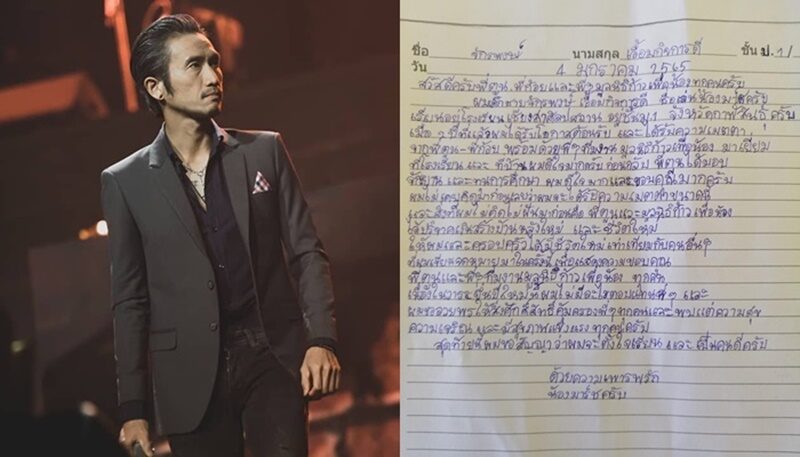 ชื่อ จักรพงษ์ นามสกุล เชื้อมกิจการดี ชั้น ป.1/
วัน 4 มกราคม 2565
สวัสดีครับพี่ตูน พี่ก้อย และพี่ๆ มูลนิธิก้าวเพื่อน้องทุกคนครับ
ผมเด็กชายจักรพงษ์ ชื่อเล่นน้องมาร์ชครับ
เรียนอยู่โรงเรียน อยู่ชั้น ม.1 จังหวัดกาฬสินธุ์ ครับ
เมื่อ 2 ปีที่แล้วผมได้รับโอกาสต้อนรับ และได้รับความเมตตา
จากพี่ตูน-พี่ก้อย พร้อมด้วยพี่ๆทีมงาน มูลนิธิก้าวเพื่อน้อง มาเยี่ยม
ที่โรงเรียนและ ที่บ้านผมดีใจมากครับก่อนกลับ พี่ตูนได้มอบ
และทุนการศึกษา ผมดีใจมากและขอบคุณมากครับ
ผมไม่เคยคิดมาก่อนเลยว่าผมจะได้รับความเมตตาขนาดนี้
และสิ่งที่ผมไม่คิดไม่ฝันมาก่อนคือ พี่ตูนและมูลนิธิก้าวเพื่อน้อง
ได้บริจาคเงินสร้างบ้านหลังใหม่ และชีวิตใหม่
ให้ผมและครอบครัวได้มีชีวิตใหม่เท่าเทียมกับคนอื่นๆ
ที่ผมเขียนจดหมายมาในครั้งนี้ เพื่อแสดงความขอบคุณ
พี่ตูนและพี่ๆทีมงานมูลนิธิก้าวเพื่อน้อง ทุกคน
เนื่องในวาระขึ้นปีใหม่นี้ผมไม่มีอะไรตอบแทนพี่ๆ และ
ผมขออวยพรให้สิ่งศักดิ์สิทธิ์คุ้มครองพี่ๆทุกคนและพบแต่ความสุข
ความเจริญ และมีสุขภาพแข็งแรง ทุกคนครับ
สุดท้ายนี้ผมขอสัญญาว่าผมจะตั้งใจเรียน และ เป็นคนดีครับ
ด้วยความเคารพรัก
น้องมาร์ชครับ